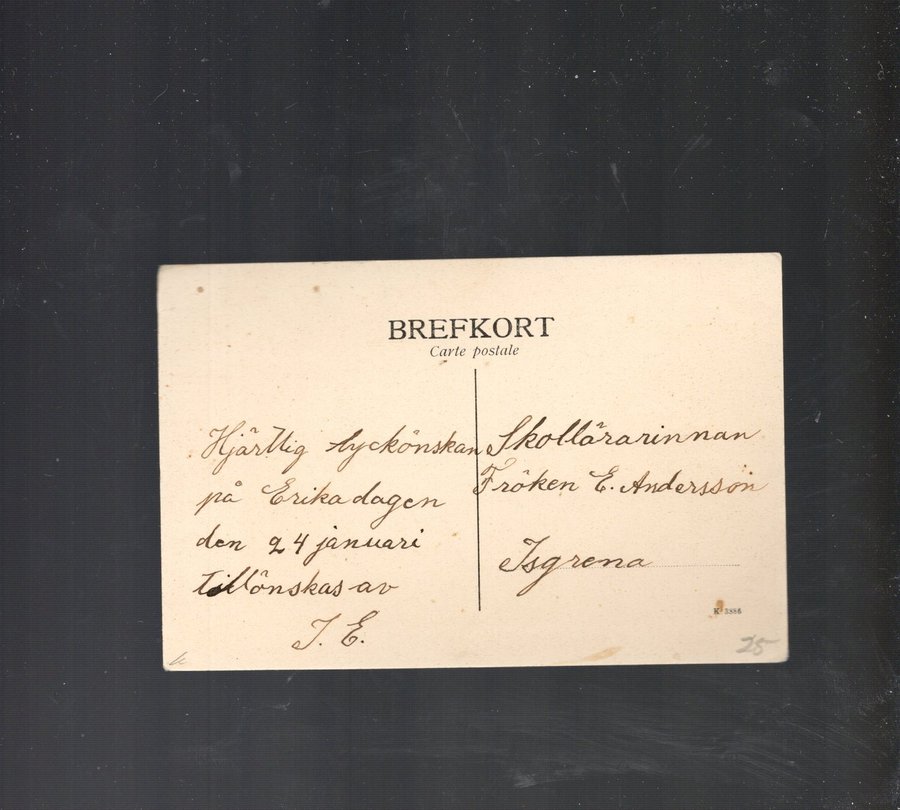 BREFKORT
Carte postale
Hjärtlig lyckönskan
på Erikadagen
den 24 januari
tillönskas av
I. E.
Skollärarinnan
Fröken E. Andersson
Isgrena
K 3886
25